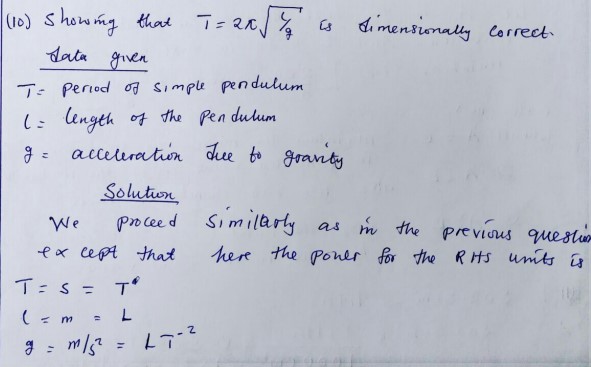 (10) Showing that T = 2π√l/g is dimensionally correct.
data given
T = period of simple pendulum
l = length of the pendulum
g = acceleration due to gravity
Solution
We proceed similarly as in the previous question
except that here the power for the RHS units is
T = s = T
l = m = L
g = m/s² = LT⁻²